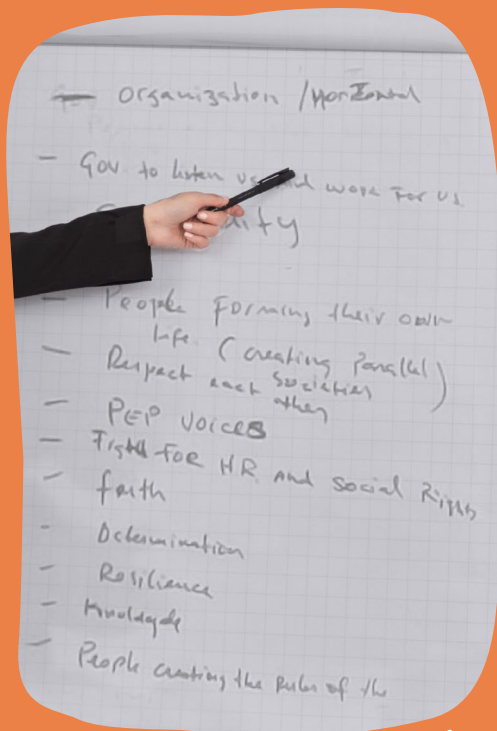 — organization / Horizontal
— Gov. to listen us and work For us
— People Forming their own
life. (creating Parallel)
— Respect each Societies
other
— PEP VOICES
— Fight FOR HR and Social Rights
— faith
- Determination
- Resilience
— Knolwgde
— People creating the Rules of the